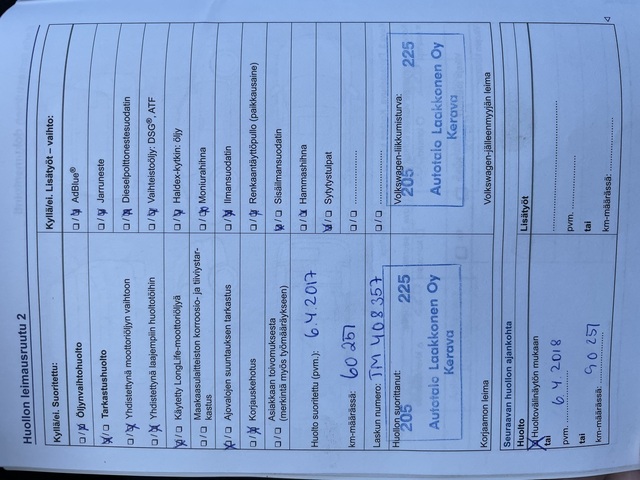 Huollon leimausruutu 2
Kyllä/ei. Suoritettu:
Öljynvaihtohuolto
Tarkastushuolto
Yhdistettynä moottoriöljyn vaihtoon
Yhdistettynä laajempiin huoltotöihin
Käytetty LongLife-moottoriöljyä
Maakaasulaitteiston korroosio- ja tiiviystar-
kastus
Ajovalojen suuntauksen tarkastus
Korjauskehotus
Asiakkaan toivomuksesta
(merkintä myös työmääräykseen)
Huolto suoritettu (pvm.): 6.4.2017
km-määrässä: 60 257
Laskun numero: TM 408357
Huollon suorittanut:
205 225
Autotalo Laakkonen Oy
Kerava
Korjaamon leima
Kyllä/ei. Lisätyöt – vaihto:
AdBlue®
Jarruneste
Dieselpolttonestesuodatin
Vaihteistoöljy: DSG®, ATF
Haldex-kytkin: öljy
Moniurahihna
Ilmansuodatin
Renkaantäyttöpullo (paikkausaine)
Sisäilmansuodatin
Hammashihna
Sytytystulpat
Volkswagen-liikkumisturva:
205 225
Autotalo Laakkonen Oy
Kerava
Volkswagen-jälleenmyyjän leima
Seuraavan huollon ajankohta
Huolto
Huoltovälinäytön mukaan
tai
pvm. 6.4.2018
tai
km-määrässä: 90 257
Lisätyöt
pvm.
tai
km-määrässä: